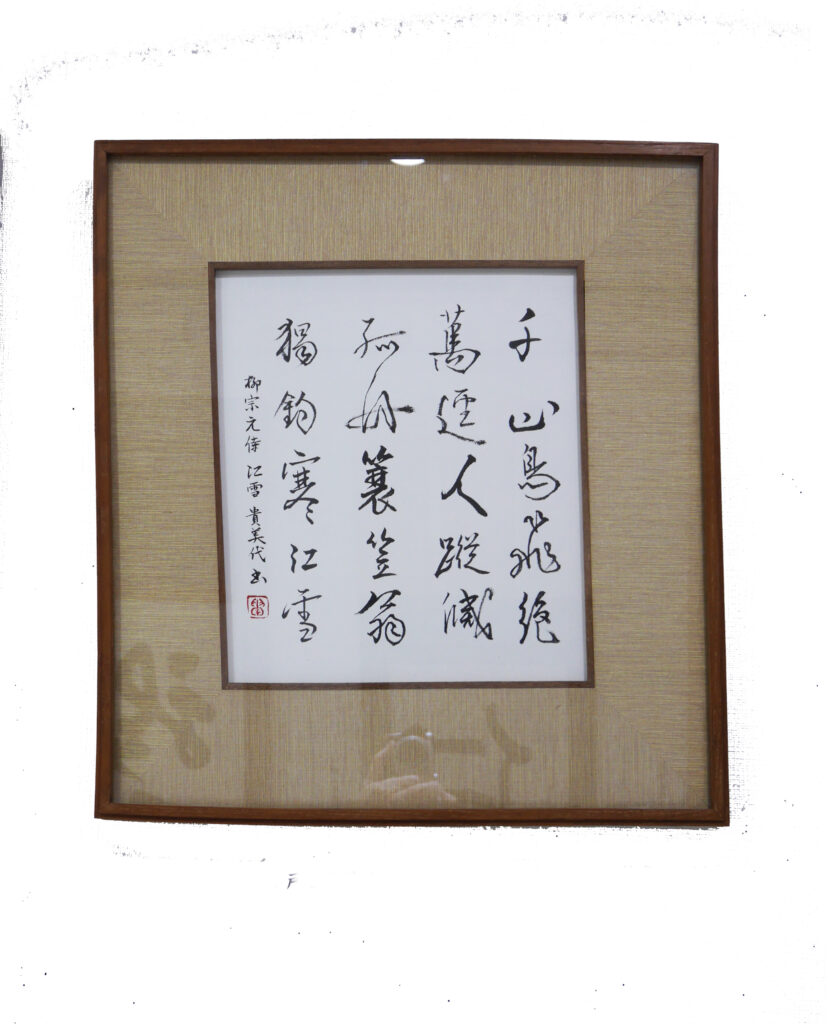 千山鳥飛絶
萬逕人蹤滅
孤舟蓑笠翁
獨釣寒江雪
柳宗元侍 江雪 貴美代书